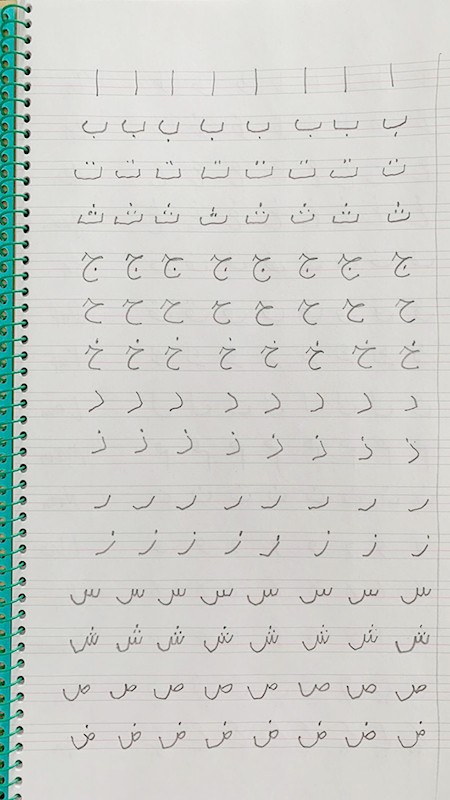 ا ا ا ا ا ا ا ا
ب ب ب ب ب ب ب ب
ت ت ت ت ت ت ت ت
ث ث ث ث ث ث ث ث
ج ج ج ج ج ج ج ج
ح ح ح ح ح ح ح ح
خ خ خ خ خ خ خ خ
د د د د د د د د
ذ ذ ذ ذ ذ ذ ذ ذ
ر ر ر ر ر ر ر ر
ز ز ز ز ز ز ز ز
س س س س س س س س
ش ش ش ش ش ش ش ش
ص ص ص ص ص ص ص ص
ض ض ض ض ض ض ض ض